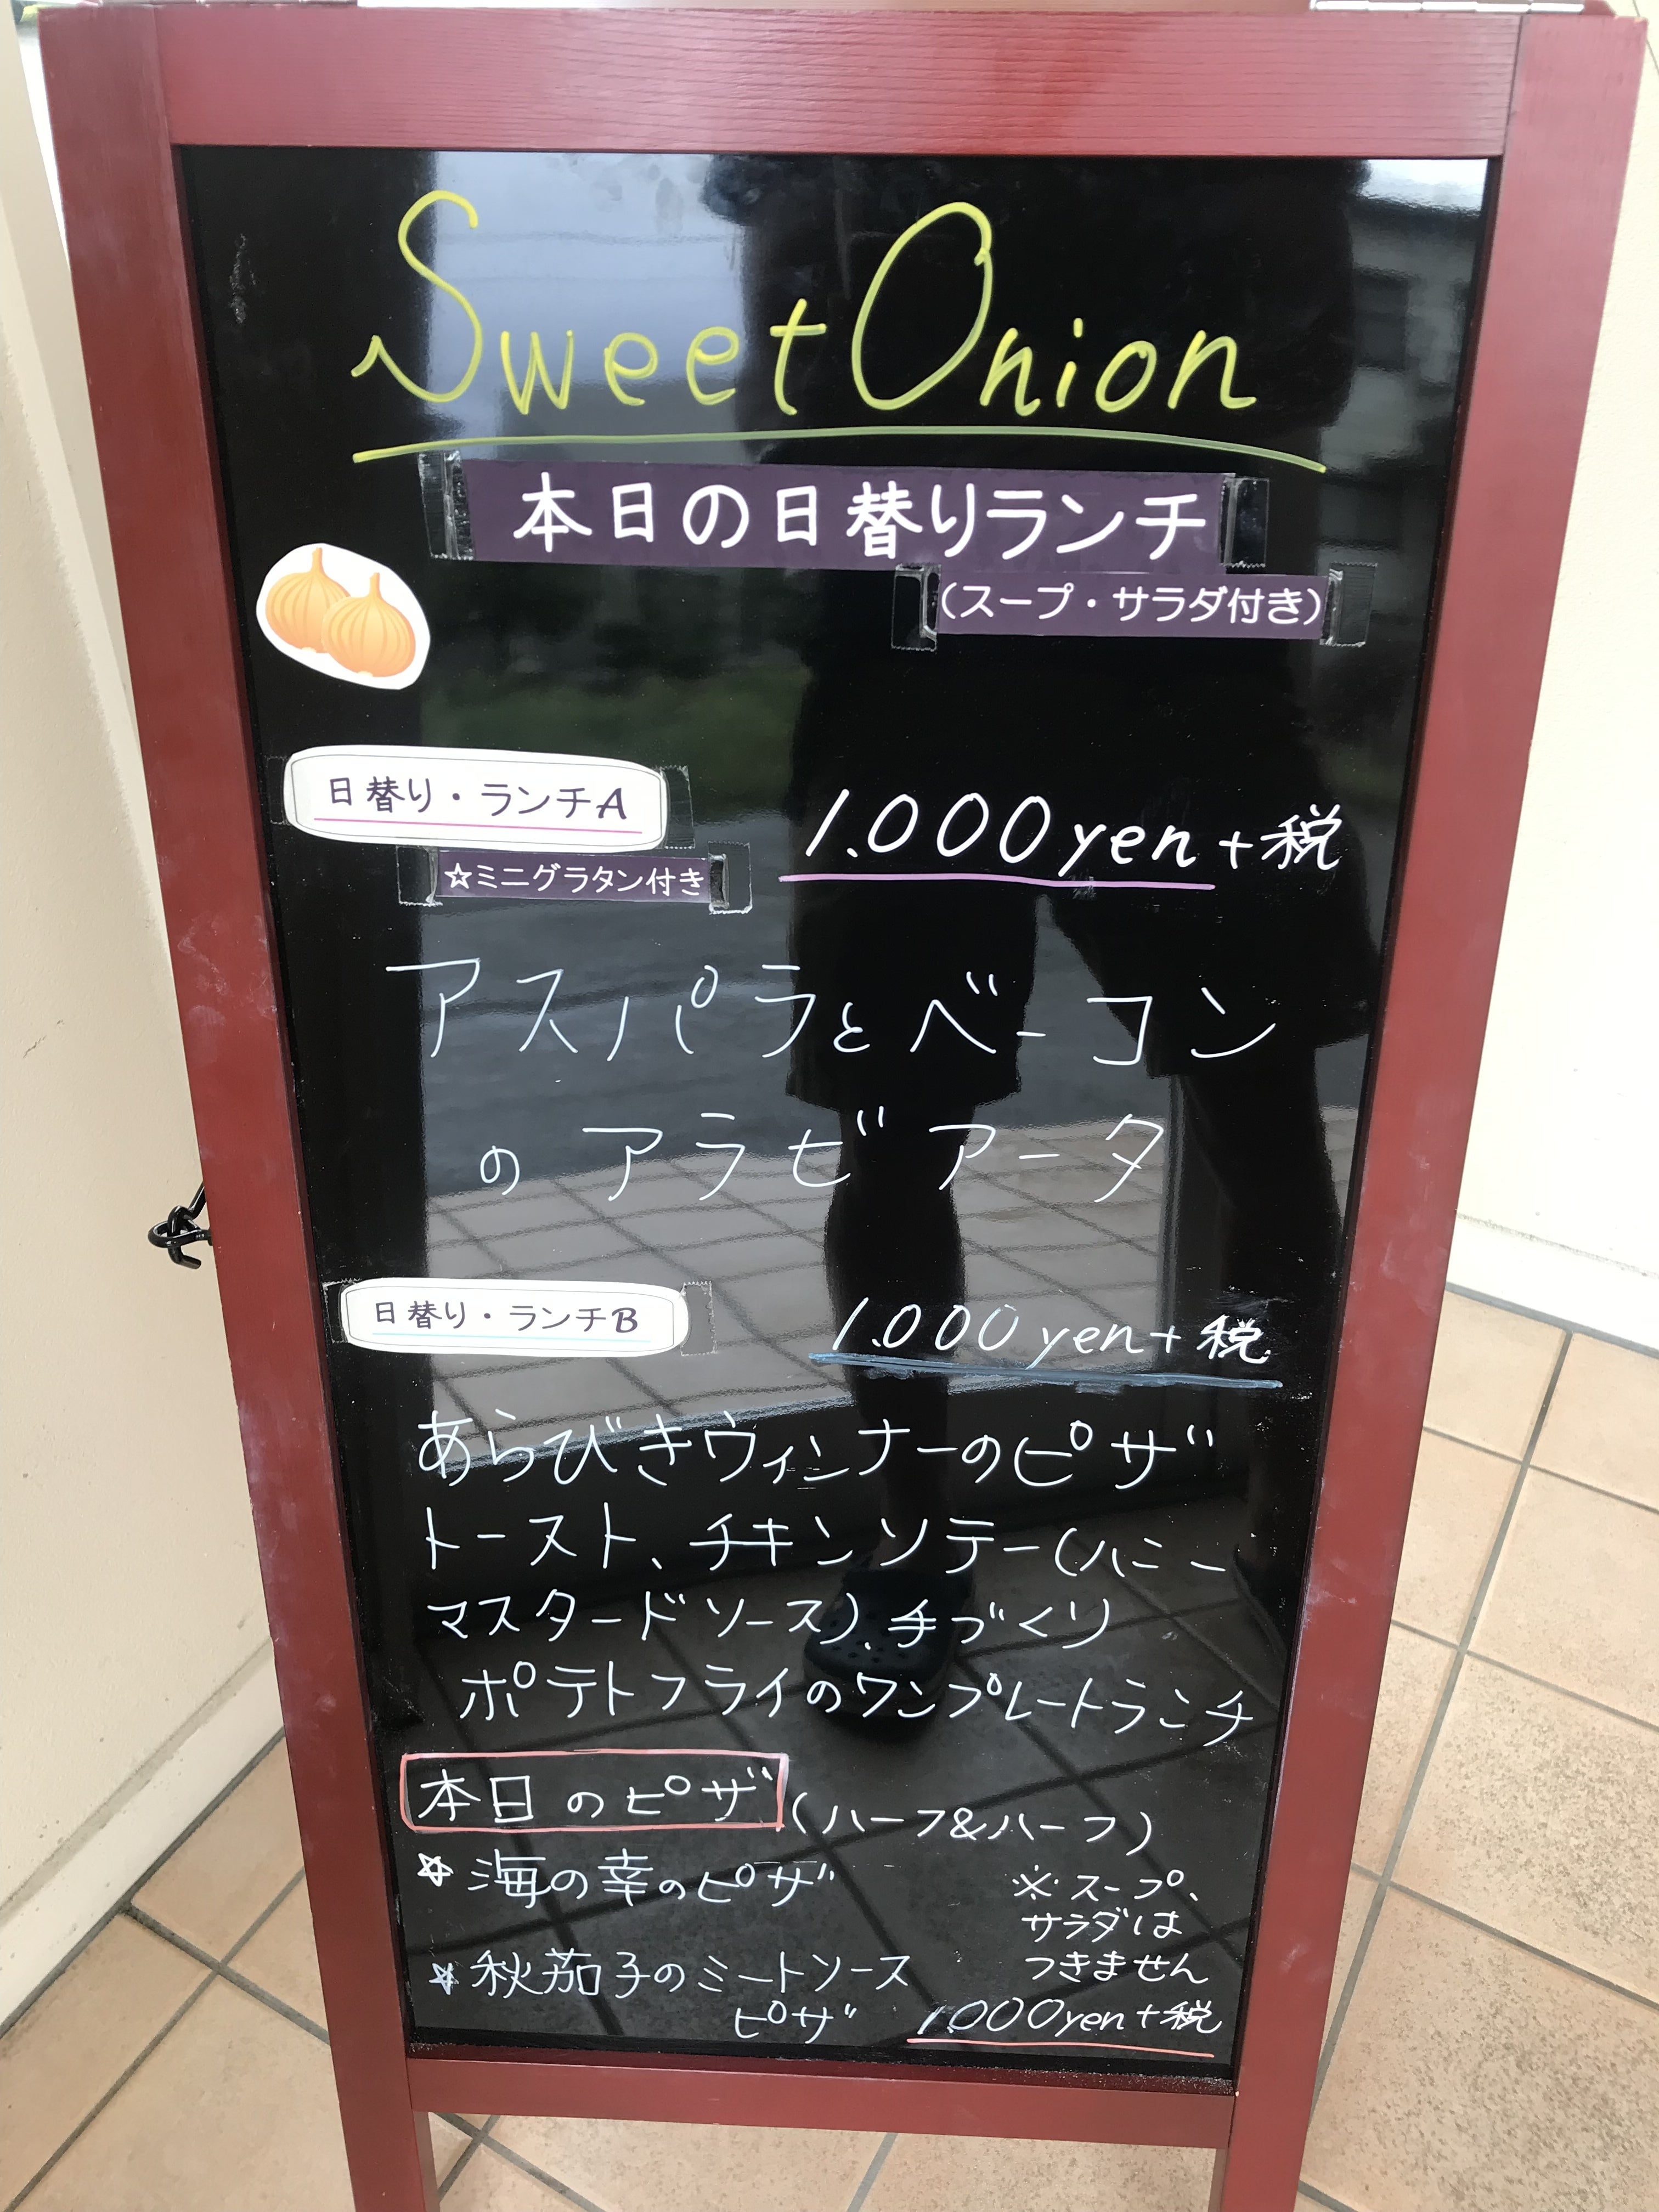 Sweet Onion
本日の日替りランチ
(スープ・サラダ付き)
日替り・ランチA
1.000yen+税
☆ミニグラタン付き
アスパラとベーコン
のアラビアータ
日替り・ランチB
1.000yen+税
あらびきウィンナーのピザ
トースト、チキンソテー(ハニー
マスタードソース)、手づくり
ポテトフライのワンプレートランチ
本日のピザ(ハーフ&ハーフ)
☆海の幸のピザ
☆秋茄子のミートソース
ピザ
※スープ、
サラダは
つきません
1.000yen+税